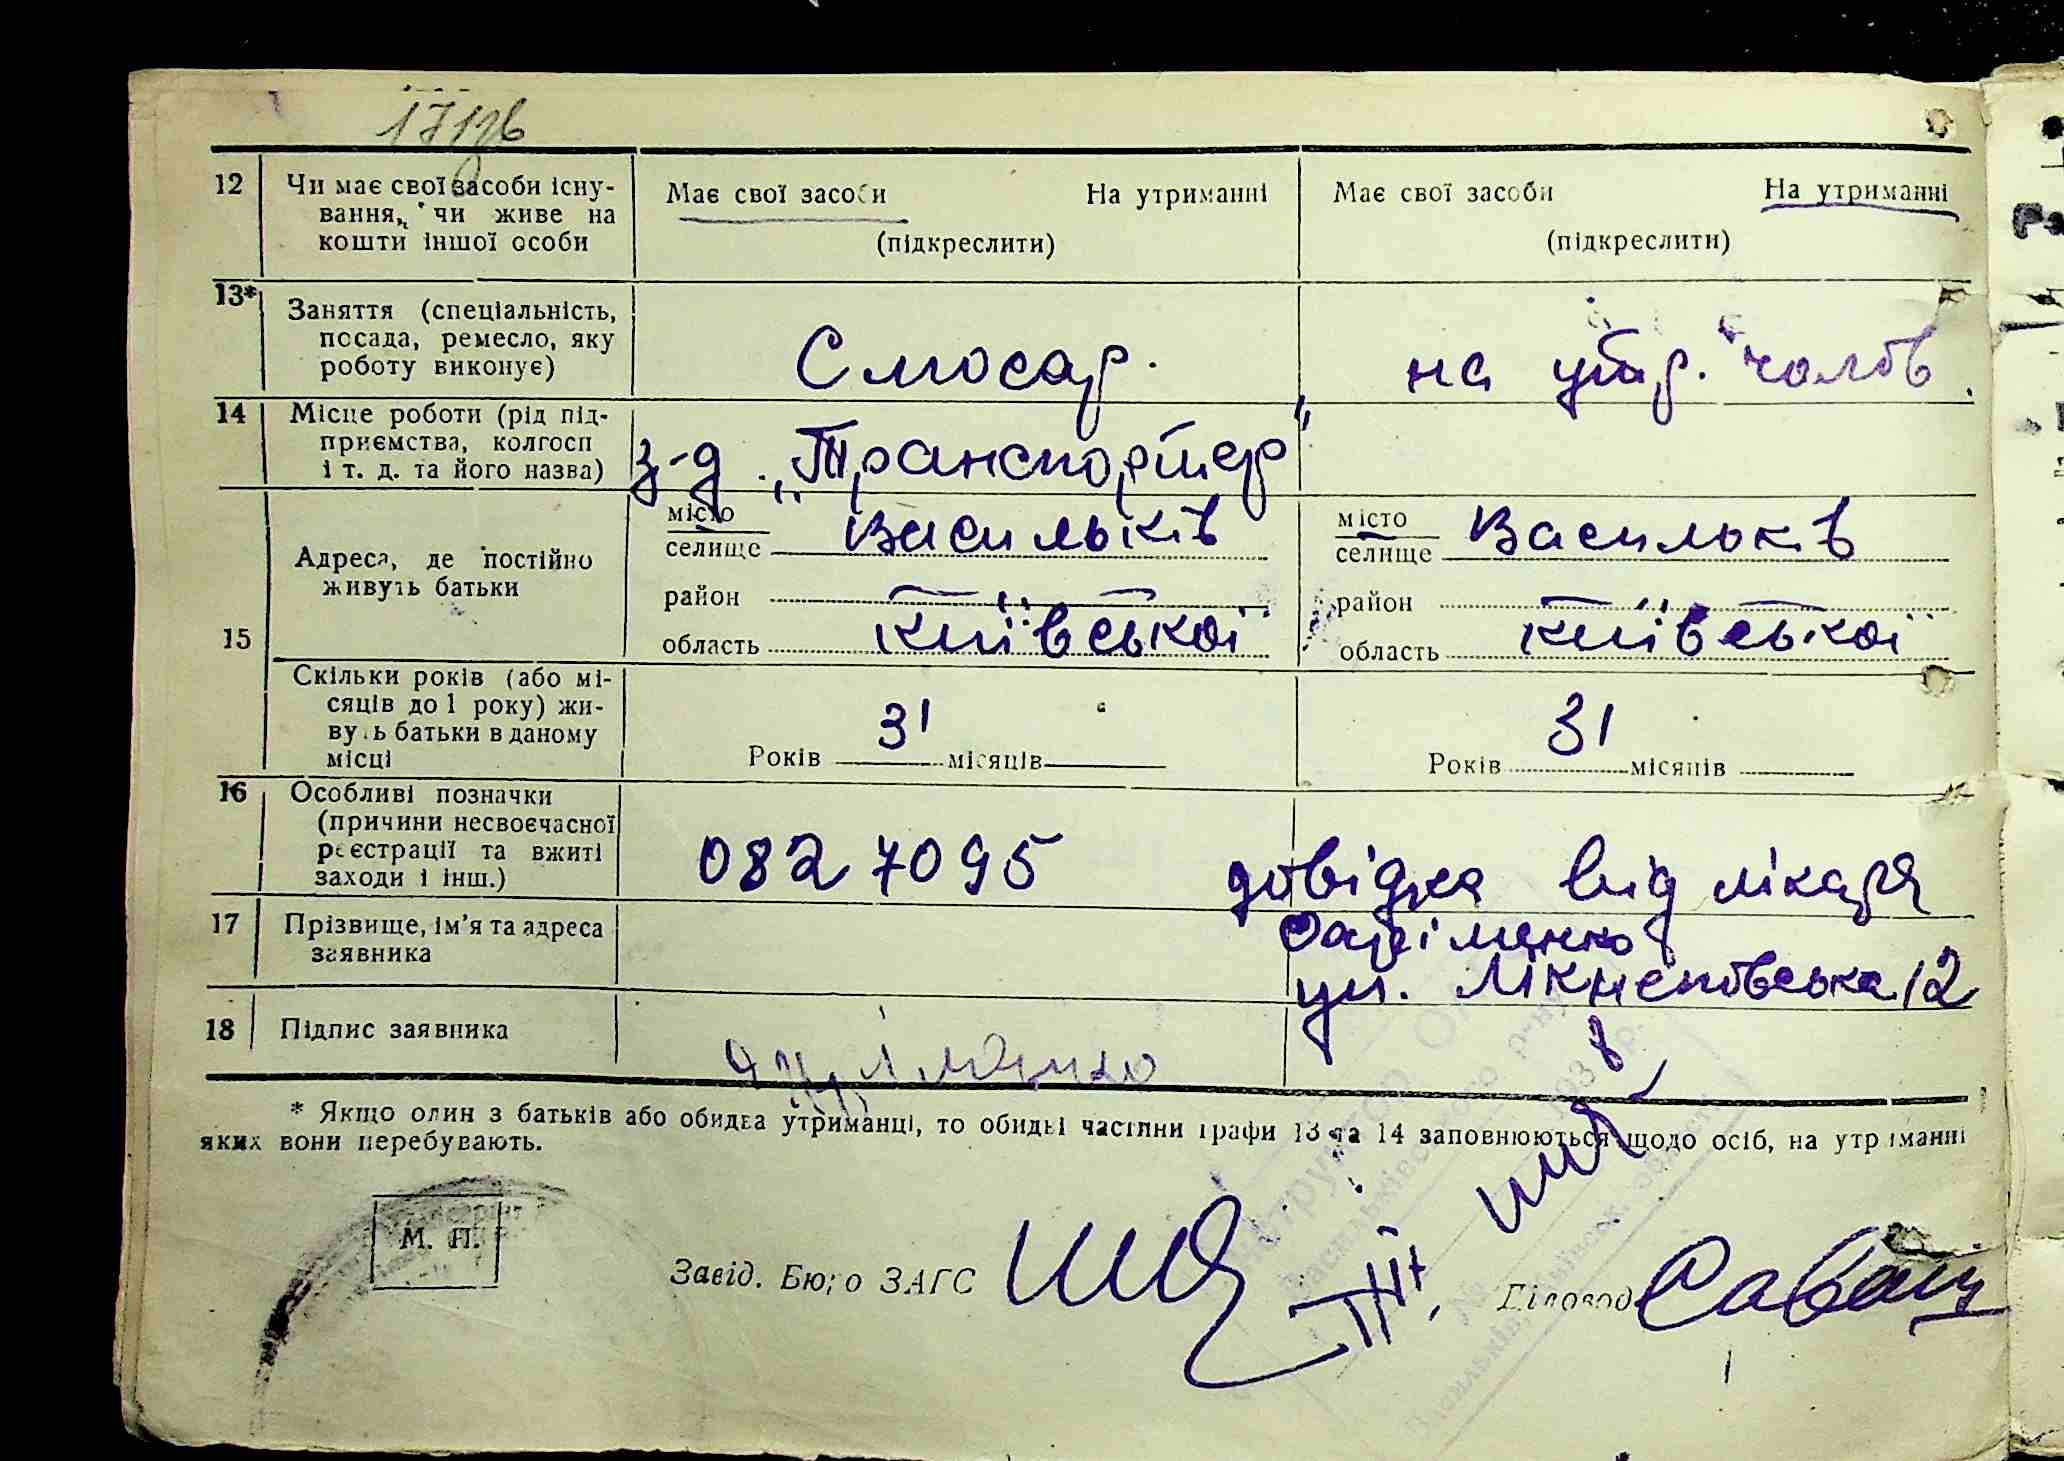 171зв
12 Чи має свої засоби існу- Має свої засоби На утриманні Має свої засоби На утриманні
вання, чи живе на
кошти іншої особи (підкреслити) (підкреслити)
13* Заняття (спеціальність,
посада, ремесло, яку Слюсар. на утр. чолов.
роботу виконує)
14 Місце роботи (рід під-
приємства, колгосп з-д „Транспортер"
і т. д. та його назва)
15 Адреса, де постійно живуть батьки
місто
селище Васильків місто
селище Васильків
район — район —
область Київської область Київської
Скільки років (або мі-
сяців до 1 року) жи-
вуть батьки в даному
місці Років 31 місяців Років 31 місяців
16 Особливі позначки
(причини несвоєчасної
реєстрації та вжиті 0827095 довідка від лікаря
заходи і інш.)
17 Прізвище, ім'я та адреса
заявника
ул. 12
18 Підпис заявника
* Якщо один з батьків або обидва утриманці, то обидві частини графи 13 та 14 заповнюються щодо осіб, на утриманні
яких вони перебувають.
М. П.
Завід. Бюро ЗАГС Діловод